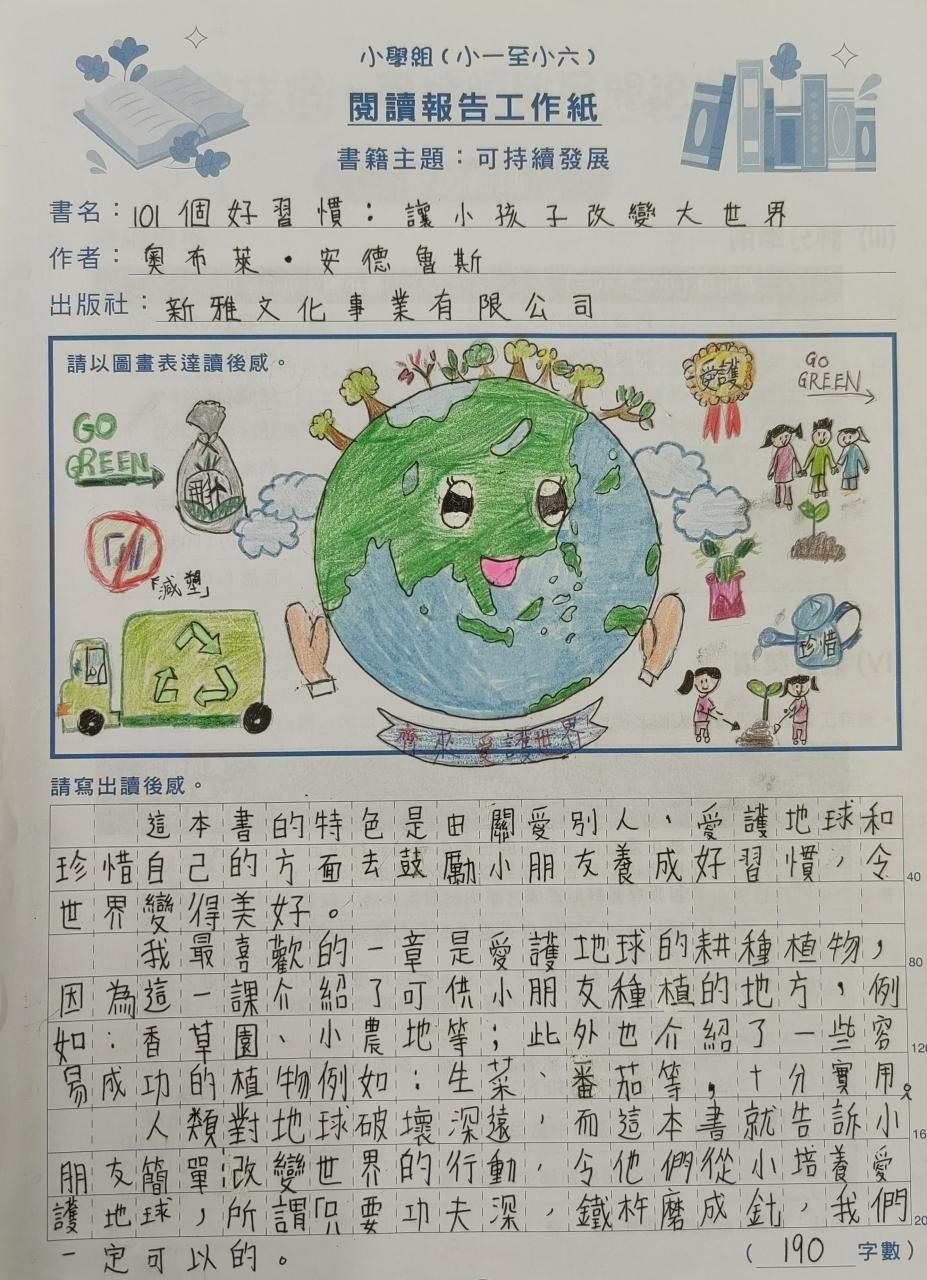 小學組(小一至小六)
閱讀報告工作紙
書籍主題：可持續發展
書名：101個好習慣：讓小孩子改變大世界
作者：奧布萊・安德魯斯
出版社：新雅文化事業有限公司
請以圖畫表達讀後感。
GO
GREEN
「減塑」
愛護
GO
GREEN
珍惜
齊來愛護世界
請寫出讀後感。
這本書的特色是由關愛別人、愛護地球和
珍惜自己的方面去鼓勵小朋友養成好習慣，令
40
世界變得美好。
我最喜歡的一章是愛護地球的耕種植物，
80
因為這一課介紹了可供小朋友種植的地方，例
如：香草園、小農地等；此外也介紹了一些容
120
易成功的植物例如：生菜、番茄等，十分實用。
人類對地球破壞深遠，而這本書就告訴小
16
朋友簡單改變世界的行動，令他們從小培養愛
護地球，所謂「只要功夫深，鐵杵磨成針，我們
20
一定可以的。
(190字數)